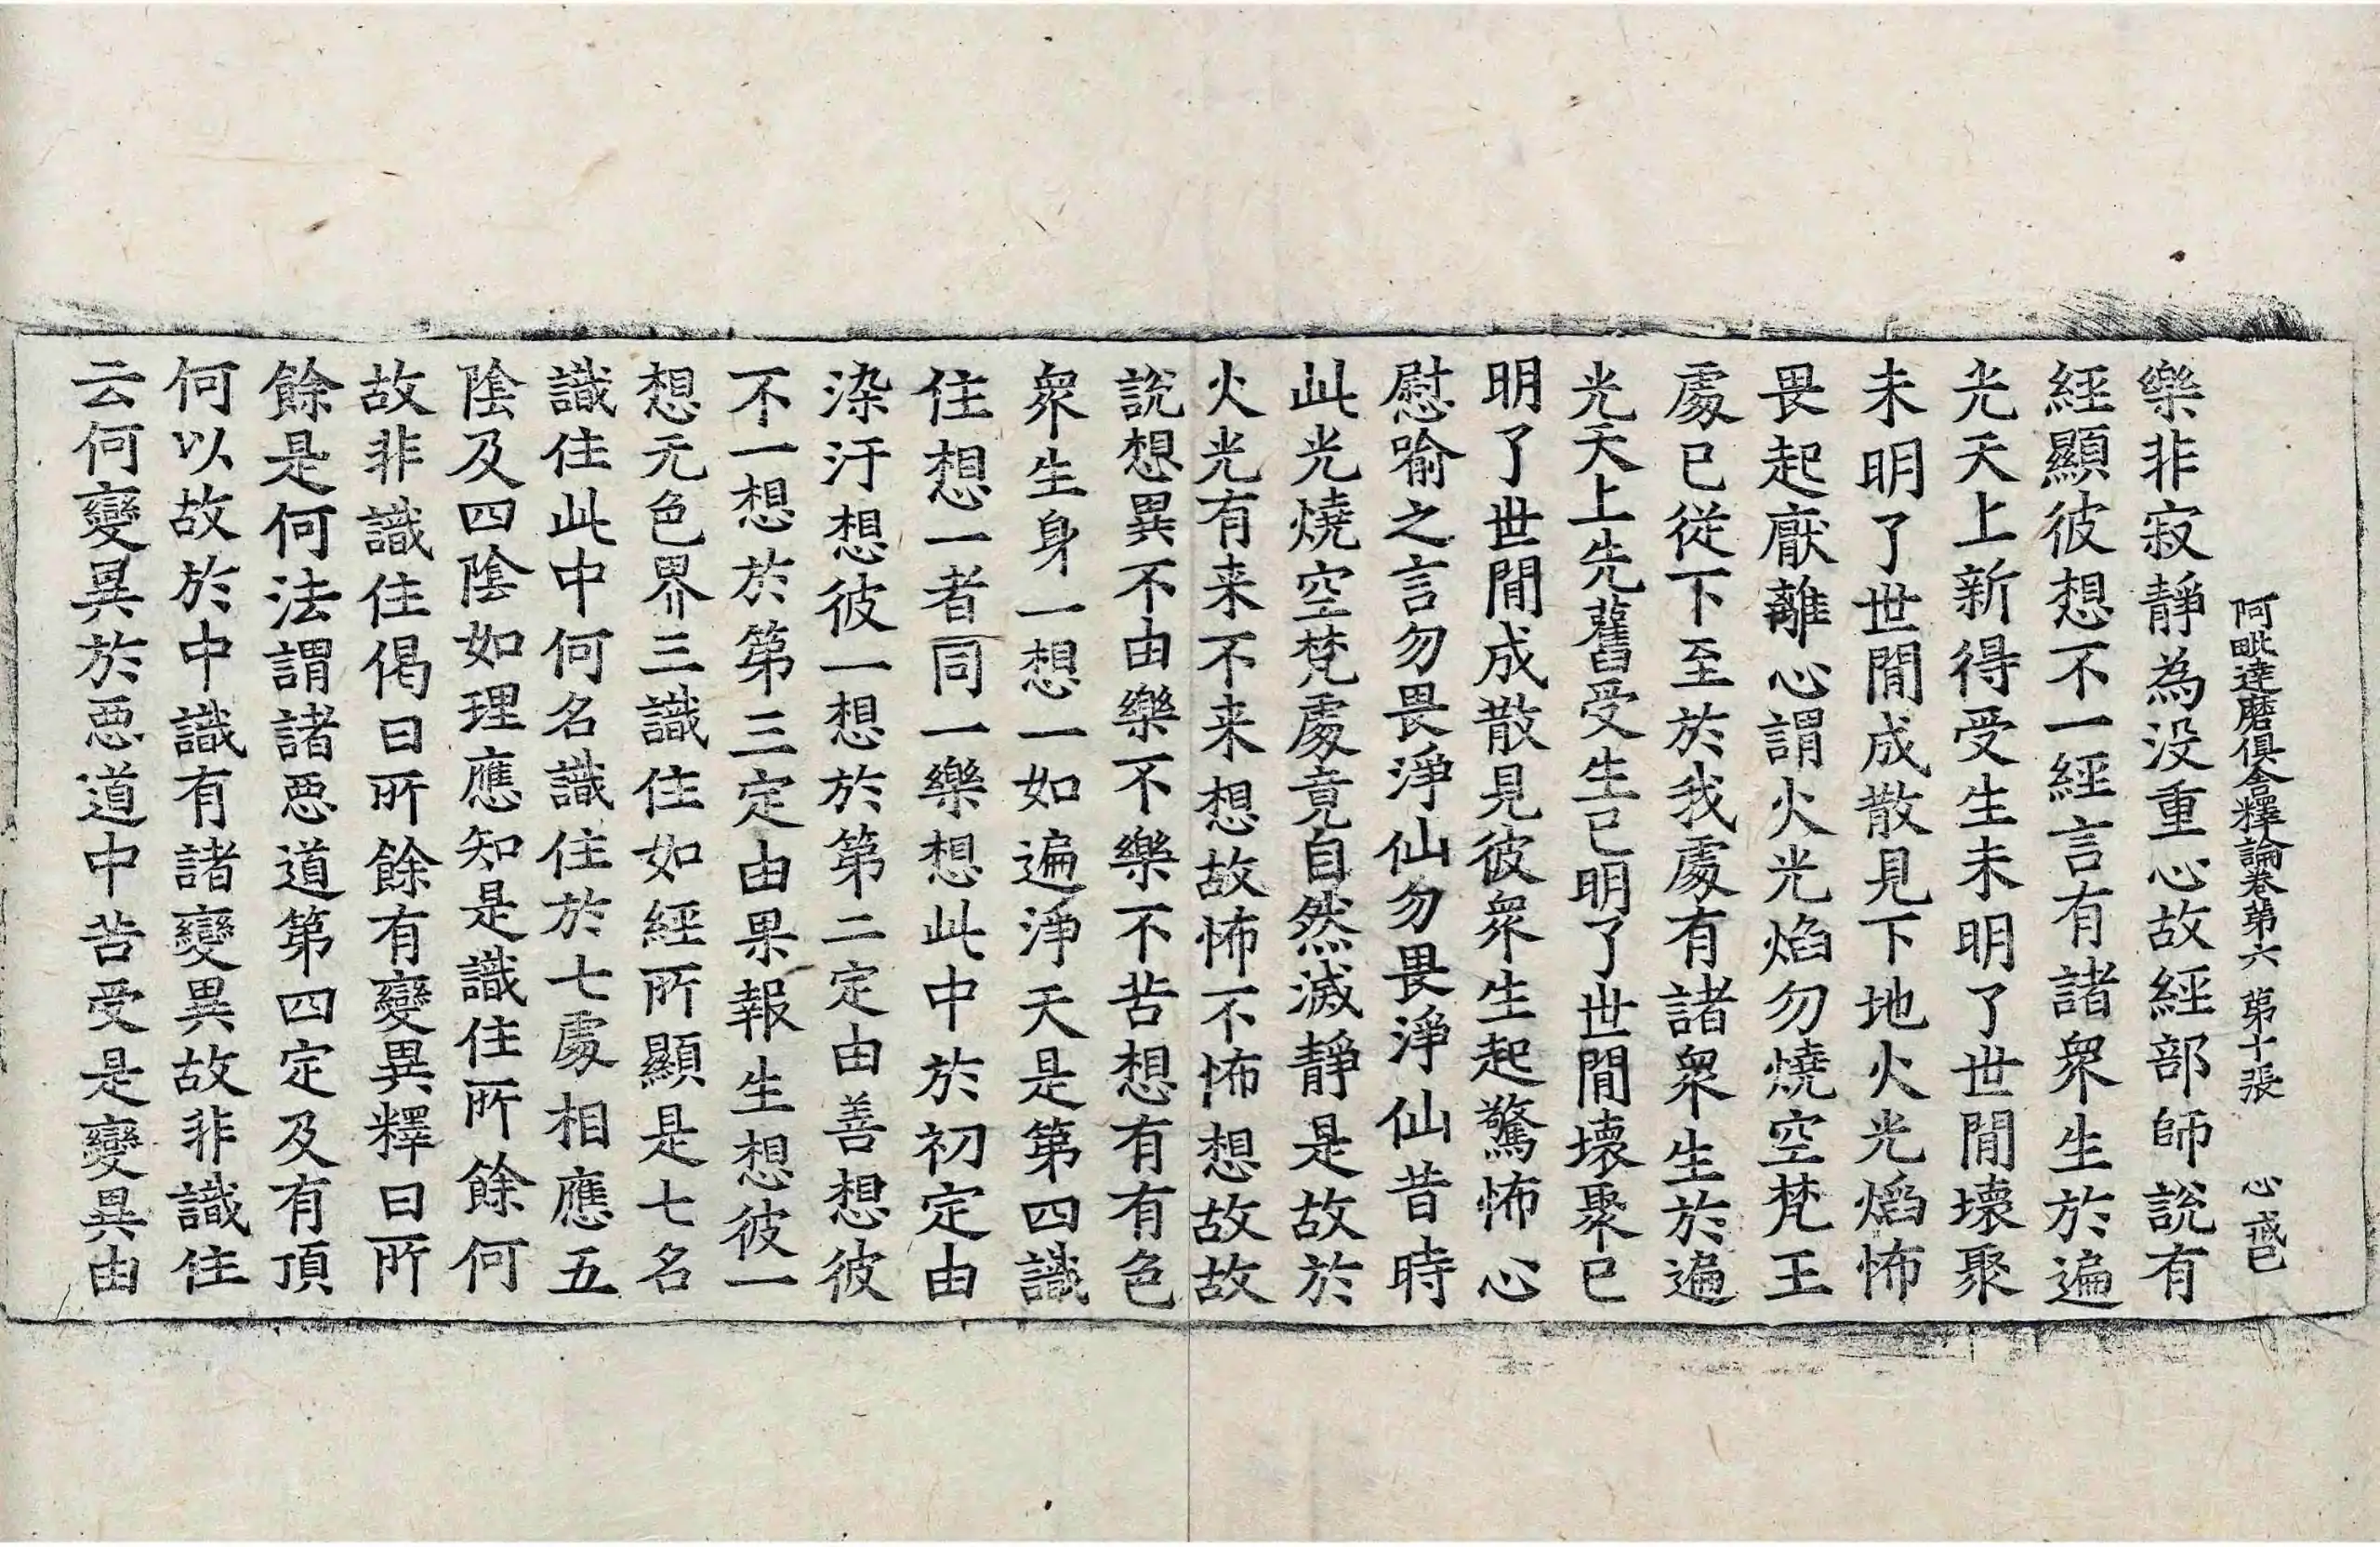 阿毗達磨俱舍釋論卷第六 第十張 心 戒巳
樂非寂靜為没重心故經部師說有
經顯彼想不一經言有諸衆生於遍
光天上新得受生未明了世間壞聚
未明了世間成散見下地火光焰怖
畏起厭離心謂火光焰勿燒空梵王
處已從下至於我處有諸衆生於遍
光天上先舊受生已明了世間壞聚已
明了世間成散見彼衆生起驚怖心
慰喻之言勿畏淨仙勿畏淨仙昔時
此光燒空梵處竟自然滅靜是故於
火光有来不来想故怖不怖想故故
說想異不由樂不樂不苦想有有色
衆生身一想一如遍淨天是第四識
住想一者同一樂想此中於初定由
染汙想彼一想於第二定由善想彼
不一想於第三定由果報生想彼一
想无色界三識住如經所顯是七名
識住此中何名識住於七處相應五
陰及四陰如理應知是識住所餘何
故非識住偈曰所餘有變異釋曰所
餘是何法謂諸惡道第四定及有頂
何以故於中識有諸變異故非識住
云何變異於惡道中苦受是變異由